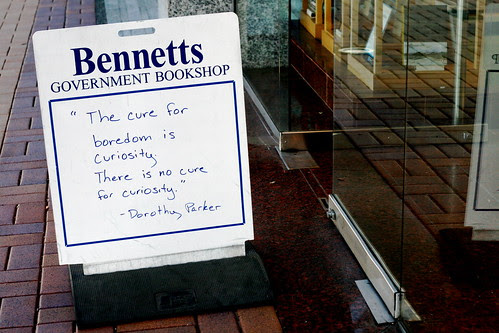 Bennetts
GOVERNMENT BOOKSHOP
"The cure for
boredom is
curiosity
There is no cure
for curiosity."
-Dorothy Parker